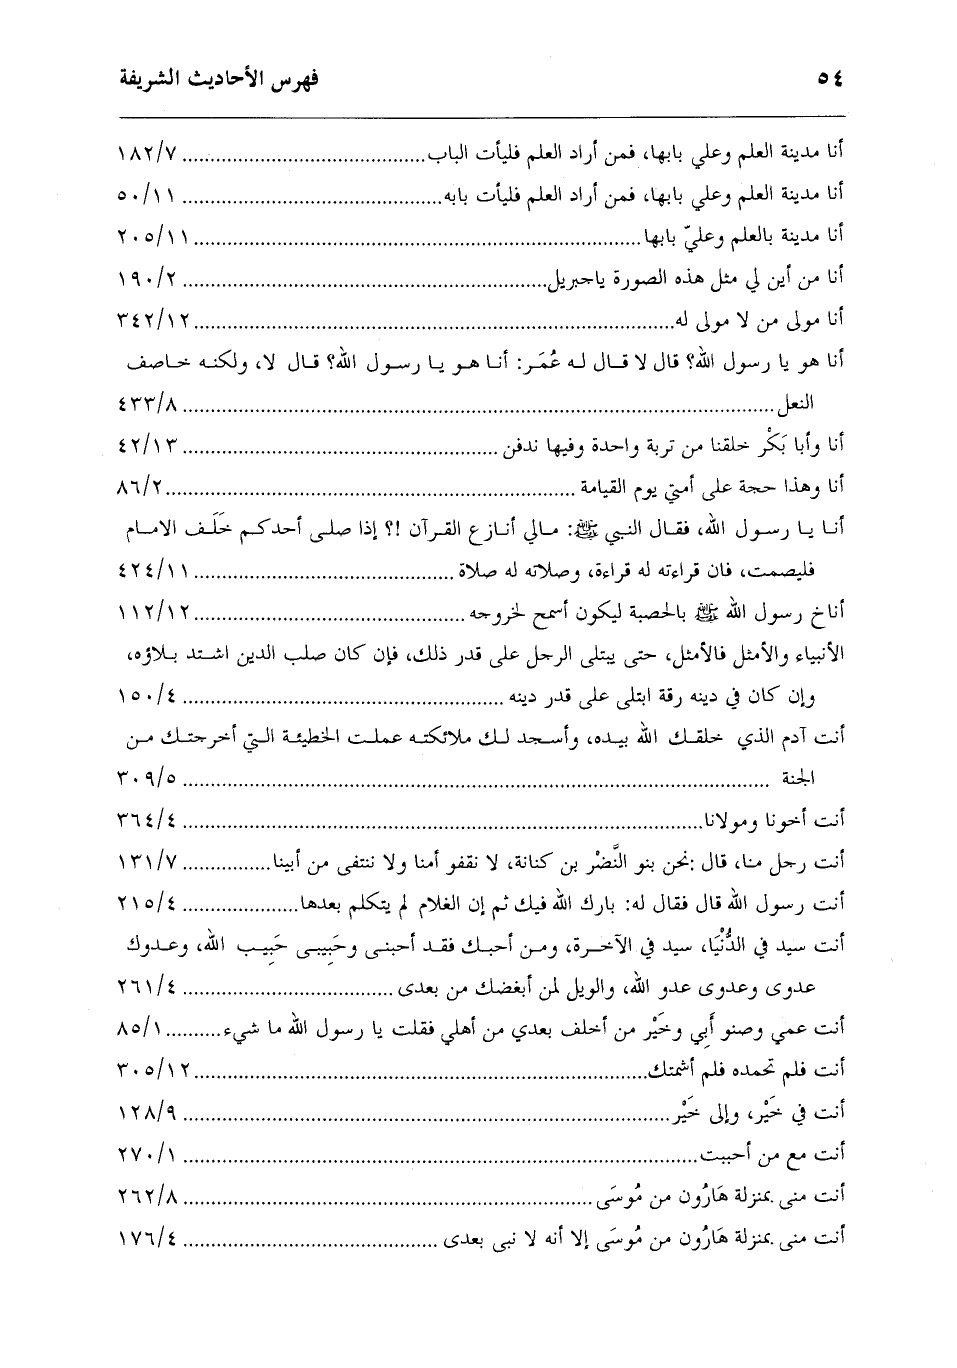 ٥٤
فهرس الأحاديث الشريفة
أنا مدينة العلم وعلي بابها، فمن أراد العلم فليأت الباب........................................ ١٨٢/٧
أنا مدينة العلم وعلي بابها، فمن أراد العلم فليأت بابه........................................ ٥٠/١١
أنا مدينة بالعلم وعليّ بابها........................................ ٢٠٥/١١
أنا من أين لي مثل هذه الصورة ياجبريل........................................ ١٩٠/٢
أنا مولى من لا مولى له........................................ ٣٤٢/١٢
أنا هو يا رسول الله؟ قال لا قال له عُمَر: أنا هو يا رسول الله؟ قال لا، ولكنه خاصف
النعل........................................ ٤٣٣/٨
أنا وأبا بَكْر خلقنا من تربة واحدة وفيها ندفن ........................................ ٤٢/١٣
أنا وهذا حجة على أمتي يوم القيامة ........................................ ٨٦/٢
أنا يا رسول الله، فقال النبي ﷺ: مالي أنازع القرآن !؟ إذا صلى أحدكم خَلَف الامام
فليصمت، فان قراءته له قراءة، وصلاته له صلاة ........................................ ٤٢٤/١١
أناخ رسول الله ﷺ بالحصبة ليكون أسمح لخروجه ........................................ ١١٢/١٢
الأنبياء والأمثل فالأمثل، حتى يبتلى الرجل على قدر ذلك، فإن كان صلب الدين اشتد بلاؤه،
وإن كان في دينه رقة ابتلى على قدر دينه ........................................ ١٥٠/٤
أنت آدم الذي خلقك الله بيده، وأسجد لك ملائكته عملت الخطيئة التي أخرجتك من
الجنة ........................................ ٣٠٩/٥
أنت أخونا ومولانا........................................ ٣٦٤/٤
أنت رجل منا، قال :نحن بنو النَّضْر بن كنانة، لا نقفو أمنا ولا ننتفى من أبينا................ ١٣١/٧
أنت رسول الله قال فقال له: بارك الله فيك ثم إن الغلام لم يتكلم بعدها.................... ٢١٥/٤
أنت سيد في الدُّنْيَا، سيد في الآخرة، ومن أحبك فقد أحبنى وحَبِيبى حَبِيب الله، وعدوك
عدوى وعدوى عدو الله، والويل لمن أبغضك من بعدى ........................................ ٢٦١/٤
أنت عمي وصنو أَبِي وخَيْر من أخلف بعدي من أهلي فقلت يا رسول الله ما شيء.......... ٨٥/١
أنت فلم تحمده فلم أشمتك........................................ ٣٠٥/١٢
أنت في خَيْر، وإلى خَيْر........................................ ١٢٨/٩
أنت مع من أحببت........................................ ٢٧٠/١
أنت منى بمنزلة هَارُون من مُوسَى........................................ ٢٦٢/٨
أنت منى بمنزلة هَارُون من مُوسَى إلا أنه لا نبى بعدى ........................................ ١٧٦/٤